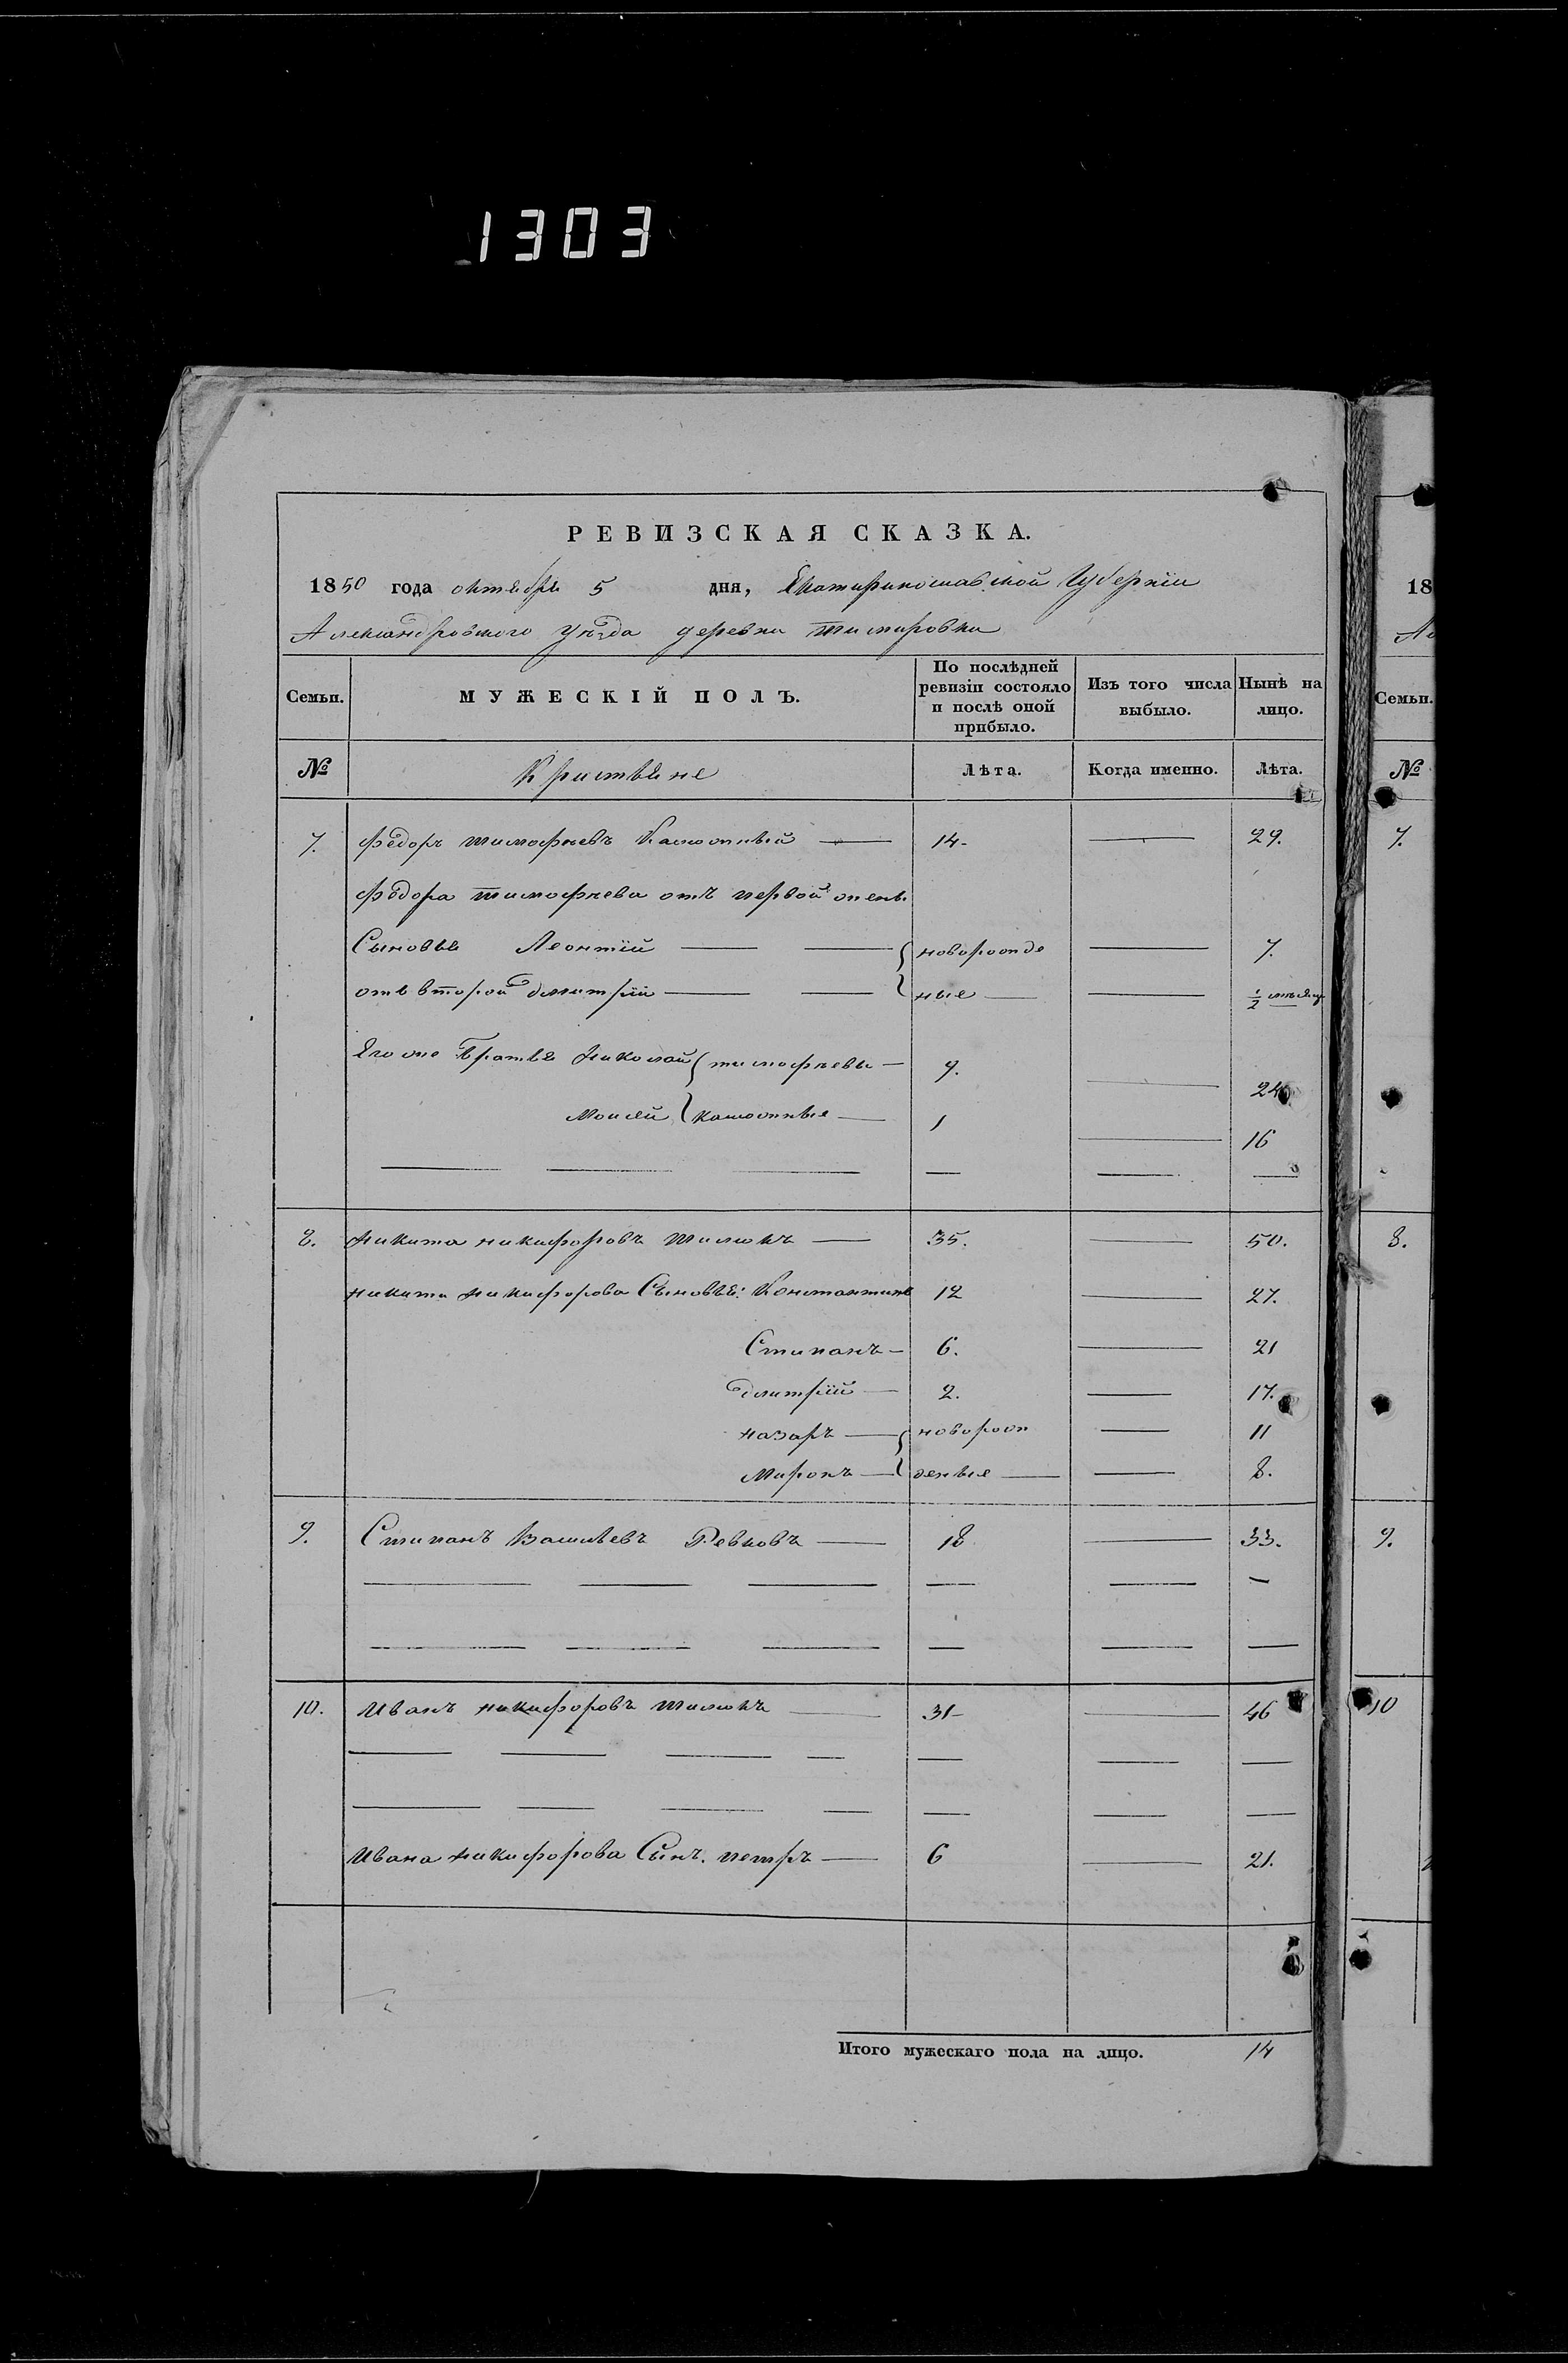 1303
РЕВИЗСКАЯ СКАЗКА.
1850 года октября 5 дня, Екатиринославской Губерніи
Александровского уѣзда деревни Тимировки
Семьи. МУЖЕСКІЙ ПОЛЪ. По послѣдней ревизіи состояло и послѣ оной прибыло. Изъ того числа выбыло. Нынѣ на лицо.
№ Кристьяне Лѣта. Когда именно. Лѣта.
7. Федоръ тимофѣевъ 14 29.
Федора тимофѣева отъ первой жены
Сыновья Леонтій новорожде 7.
отъ второй дмитрій ные 1/2 месяц
Его же Братья Николай тимофѣевы 9. 24
Моисей 1 16
8. Никита никифоровъ 35. 50.
никиты никифорова Сыновья: Константинъ 12 27.
Стипанъ 6. 21
дмитрій 2. 17.
назаръ новорож 11
Миронъ деные 8.
9. Стипанъ Васильевъ Ревковъ 18 33.
10. Иванъ никифоровъ 31 46
Ивана никифорова Сынъ. петръ 6 21.
Итого мужескаго пола на лицо. 14
18
Ал
Семьи.
№
7.
8.
9.
10